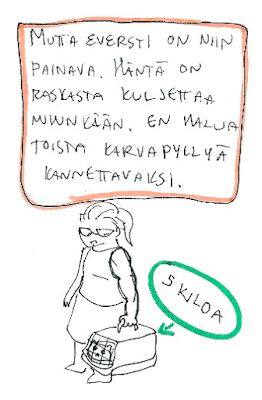 MUTTA EVERSTI ON NIIN
PAINAVA. HÄNTÄ ON
RASKASTA KULJETTAA
MIHINKÄÄN. EN HALUA
TOISTA KARVAPYLLYÄ
KANNETTAVAKSI.
5 KILOA